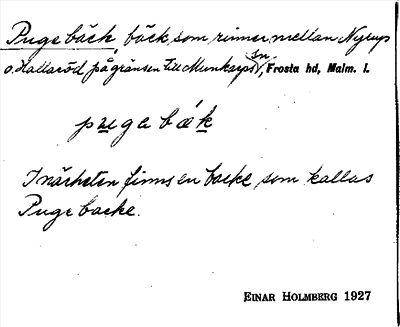 Puge bäck, bäck, som rinner mellan Nyrup
o. Hallaröd på gränsen till Munkarps sn, Frosta hd, Malm. l.
puge bák
I närheten finns en backe som kallas
Puge backe.
EINAR HOLMBERG 1927